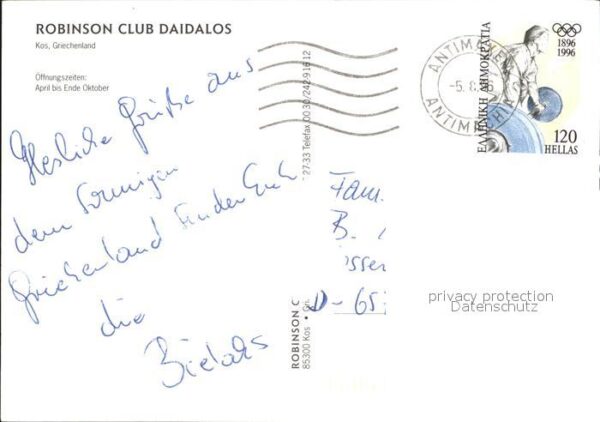 ROBINSON CLUB DAIDALOS
Kos, Griechenland
Öffnungszeiten:
April bis Ende Oktober
Herzliche Grüße aus
dem sonnigen
Griechenland senden Euch
die
27-33 Telefax 00 30/242 9 16 12
ROBINSON C
85300 Kos • Gr
Fam.
B.
sser
D-65
ANTIMACHIA
-5. 8. 96
ΕΛΛΗΝΙΚΗ ΔΗΜΟΚΡΑΤΙΑ
1896
1996
120
HELLAS
privacy protection
Datenschutz